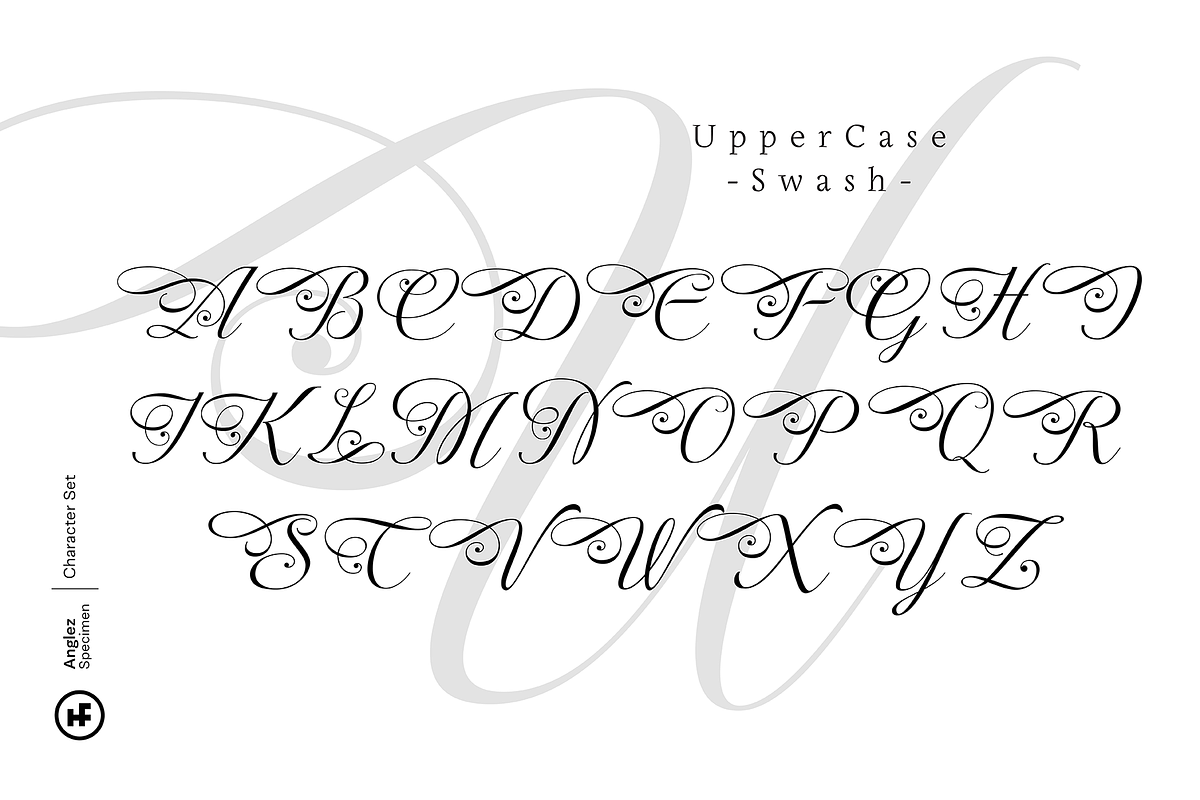 UpperCase
-Swash-
A B C D E F G H I
J K L M N O P Q R
S T V W X Y Z
Character Set
Anglez
Specimen